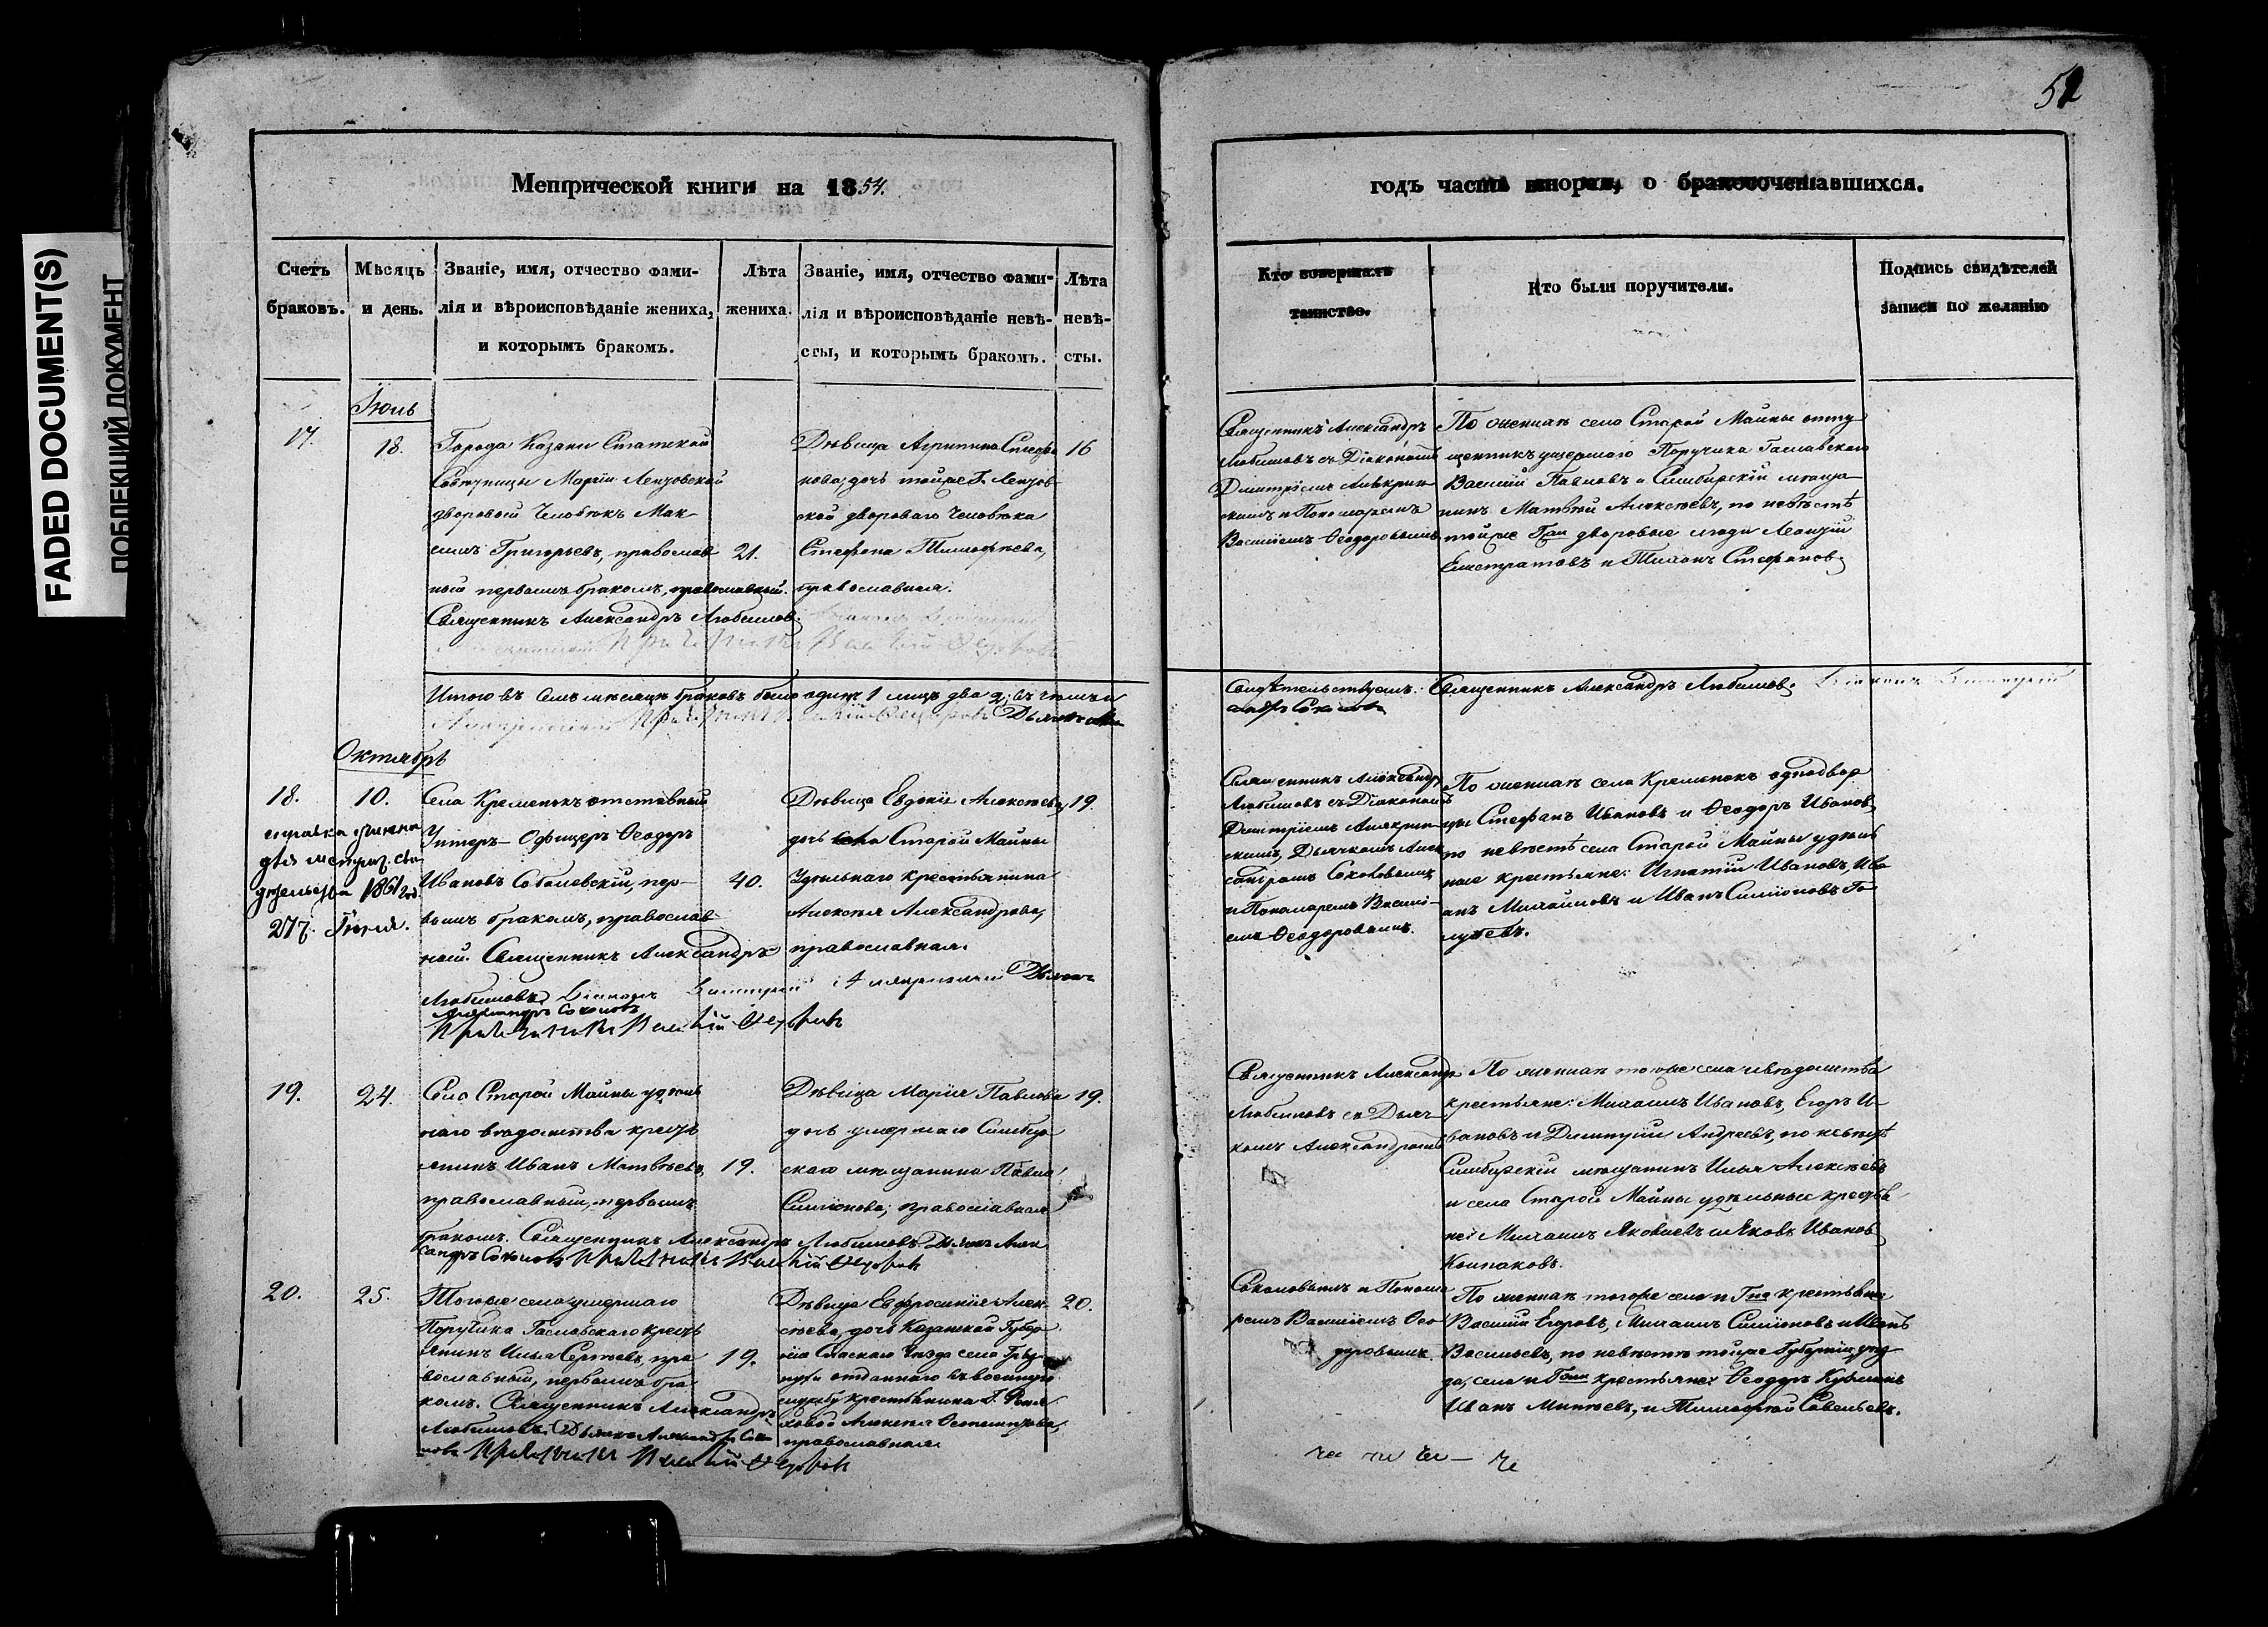 FADED DOCUMENT(S)
ПОБЛЕКШИЙ ДОКУМЕНТ
52
Метрической книги на 1854.
годъ часть вторая, о бракосочетавшихся.
Счетъ
браковъ.
Мѣсяцъ
и день.
Званіе, имя, отчество фами-
лія и вѣроисповѣданіе жениха,
и которымъ бракомъ.
Лѣта
жениха.
Званіе, имя, отчество фами-
лія и вѣроисповѣданіе невѣ-
сты, и которымъ бракомъ.
Лѣта
невѣ-
сты.
Кто совершалъ
таинство.
Кто были поручители.
Подпись свидѣтелей
записи по желанію
Іюль
17.
18.
Города Казани Статской
Совѣтницы Маріи
дворовой человѣкъ Мак-
симъ Григорьевъ, православ
ный первымъ бракомъ, православный.
Священникъ Александръ Любимовъ
21.
Дѣвица Агрипина Стефа
нова, дочь тойже Г.
ской двороваго человѣка
Стефана Тимофеева,
православная.
16
Священникъ Александръ
Любимовъ съ Діакономъ
Димитріемъ
и Пономаремъ
Василіемъ Ѳеодоровымъ
По женихѣ села Старой Майны отпу
щенникъ умершаго Поручика
Василій Павловъ и Симбирскій мѣща
нинъ Матвѣй Алексѣевъ, по невѣстѣ
тойже Гжи дворовые люди Леонтій
Емстратовъ и Тихонъ Стефановъ
Итого въ семъ мѣсяцѣ браковъ было одинъ 1 лицъ два 2.
Свидѣтельствуемъ: Священникъ Александръ Любимовъ Діаконъ Димитрій
Октябрь
18.
10.
справка
для метрич. сви
дѣтельства 1861 год
27. Іюня.
Села Кременокъ отставный
Унтеръ-Офицеръ Ѳеодоръ
Ивановъ Соболевскій, пер-
вымъ бракомъ, православ-
ный. Священникъ Александръ
Любимовъ Діаконъ Димитрій
Александръ Соколовъ
40.
Дѣвица Евдокія Алексѣева,
дочь села Старой Майны
Удѣльнаго крестьянина
Алексѣя Александрова,
православная.
19.
Священникъ Александръ
Любимовъ съ Діакономъ
Димитріемъ
Дьячкомъ Алек
сандромъ Соколовымъ
и Пономаремъ Васили-
емъ Ѳеодоровымъ.
По женихѣ села Кременокъ однодвор
цы Стефанъ Ивановъ и Ѳеодоръ Ивановъ,
по невѣстѣ села Старой Майны удѣль
ные крестьяне: Игнатій Ивановъ, Ива
анъ Михайловъ и Иванъ Симіоновъ Го
лубевъ.
19.
24.
Села Старой Майны удѣль
наго вѣдомства кресть
янинъ Иванъ Матвѣевъ,
православный, первымъ
бракомъ. Священникъ Александръ Любимовъ Дьячекъ Алек
сандръ Соколовъ
19.
Дѣвица Марія Павлова
дочь умершаго Симбир
скаго мѣщанина Павла
Симіонова, православная
19.
Священникъ Александръ
Любимовъ съ Дьяч-
комъ Александромъ
По женихѣ тогоже села и вѣдомства
крестьяне: Михаилъ Ивановъ, Егоръ И-
вановъ и Димитрій Андреевъ, по невѣстѣ
Симбирскій мѣщанинъ Илья Алексѣевъ
и села Старой Майны удѣльные крестья
не: Михаилъ Яковлевъ и Яковъ Ивановъ
Колпаковъ.
20.
25.
Тогоже села умершаго
Поручика кресть
янинъ Илья Сергѣевъ, пра
вославный, первымъ бра
комъ. Священникъ Александръ
Любимовъ. Дьячекъ Александръ Соко
ловъ
19.
Дѣвица Евфросинія Алек
сѣева, дочь Казанской Губер
ніи Спаскаго Уѣзда села
отданнаго въ военную
службу крестьянина Г.
Алексѣя
православная
20.
Соколовымъ и Понома
ремъ Василіемъ Ѳео
доровымъ.
По женихѣ тогоже села и Гна крестьяне
Василій Егоровъ, Михаилъ Симіоновъ и Иванъ
Васильевъ, по невѣстѣ тойже Губерніи, уѣз
да, села и Гжи крестьяне: Ѳеодоръ Кузьминъ
Иванъ Михѣевъ, и Тимофей Савельевъ.